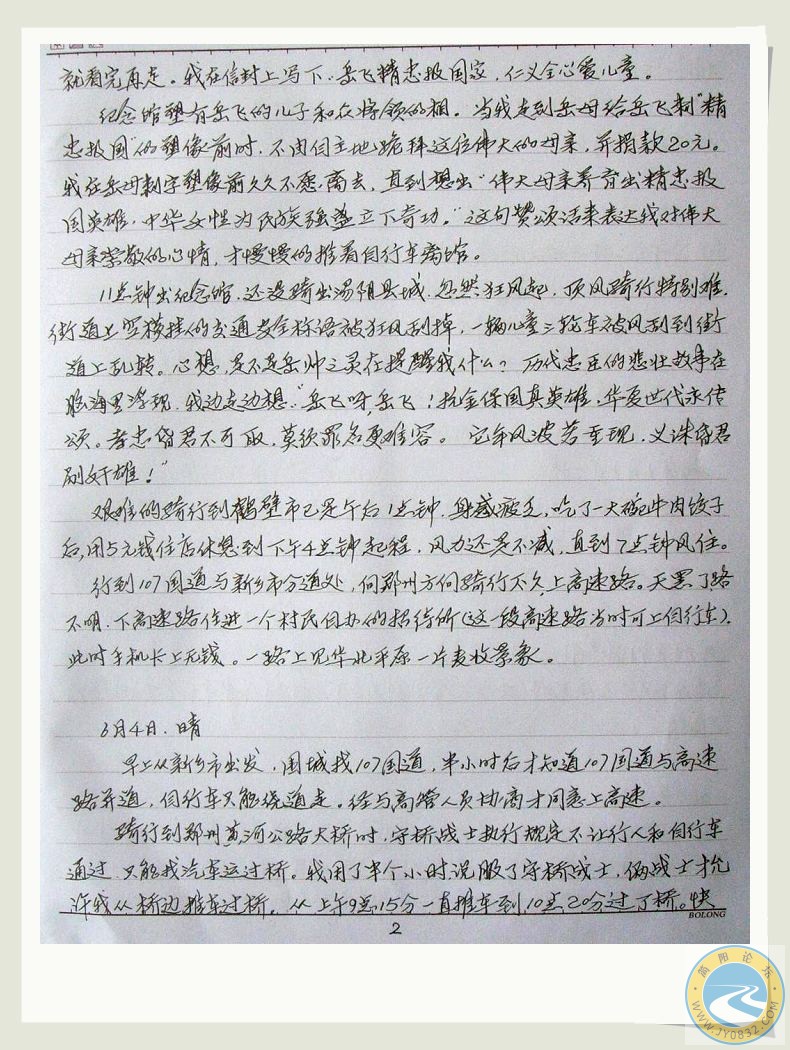 就看完再走。我在信封上写下:岳飞精忠报国家,仁义全心爱儿童。
纪念馆塑有岳飞的儿子和众将领的相。当我走到岳母给岳飞刺"精
忠报国"的塑像前时,不由自主地跪拜这位伟大的母亲,并捐款20元。
我在岳母刺字塑像前久久不愿离去,直到想出"伟大母亲养育出精忠报
国英雄,中华女性为民族强盛立下奇功。"这句赞颂话来表达我对伟大
母亲崇敬的心情,才慢慢的推着自行车离馆。
11点钟出纪念馆,还没骑出汤阴县城,忽然狂风起,顶风骑行特别难,
街道上空横挂的交通安全标语被狂风刮掉,一辆儿童三轮车被风刮到街
道上乱转。心想,是不是岳帅之灵在提醒我什么?历代忠臣的悲壮故事在
脑海里浮现,我边走边想:"岳飞呀,岳飞!抗金保国真英雄,华夏世代永传
颂。孝忠昏君不可取,莫须罪名更难容。它年风波若重现,义诛昏君
剐奸雄!"
艰难的骑行到鹤壁市已是午后1点钟,身感疲乏,吃了一大碗牛肉饺子
后,用5元钱住店休息到下午4点钟起程,风力还是不减,直到7点钟风住。
行到107国道与新乡市分道处,向郑州方向骑行不久,上高速路。天黑了路
不明,下高速路住进一个村民自办的招待所(这一段高速路当时可上自行车).
此时手机卡上无钱。一路上见华北平原一片麦收景象。
6月4日.晴
早上从新乡市出发,围城找107国道,半小时后才知道107国道与高速
路并道,自行车只能绕道走。经与高管人员协商才同意上高速。
骑行到郑州黄河公路大桥时,守桥战士执行规定不让行人和自行车
通过,只能找汽车运过桥。我用了半个小时说服了守桥战士,俩战士才允
许我从桥边推车过桥。从上午9点15分一直推车到10点20分过了桥。快
BOLONG
2
简阳论坛
WWW.JY0832.COM